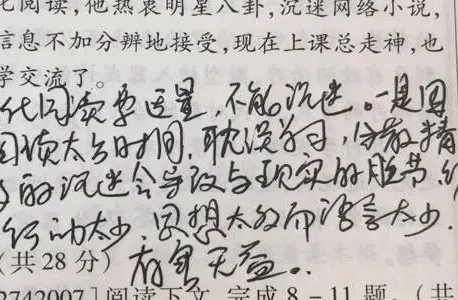 阅读,他热衷明星八卦,沉迷网络小说,
信息不加分辨地接受,现在上课总走神,也
学交流了。
代阅读要适量,不能沉迷。一是因
阅读太占时间,耽误学习,分散精
的沉迷会导致与现实的脱节,
行动太少,思想太多而语言太少.
(共28分)有害无益..
2742007]阅读下文,完成8-11题。(共